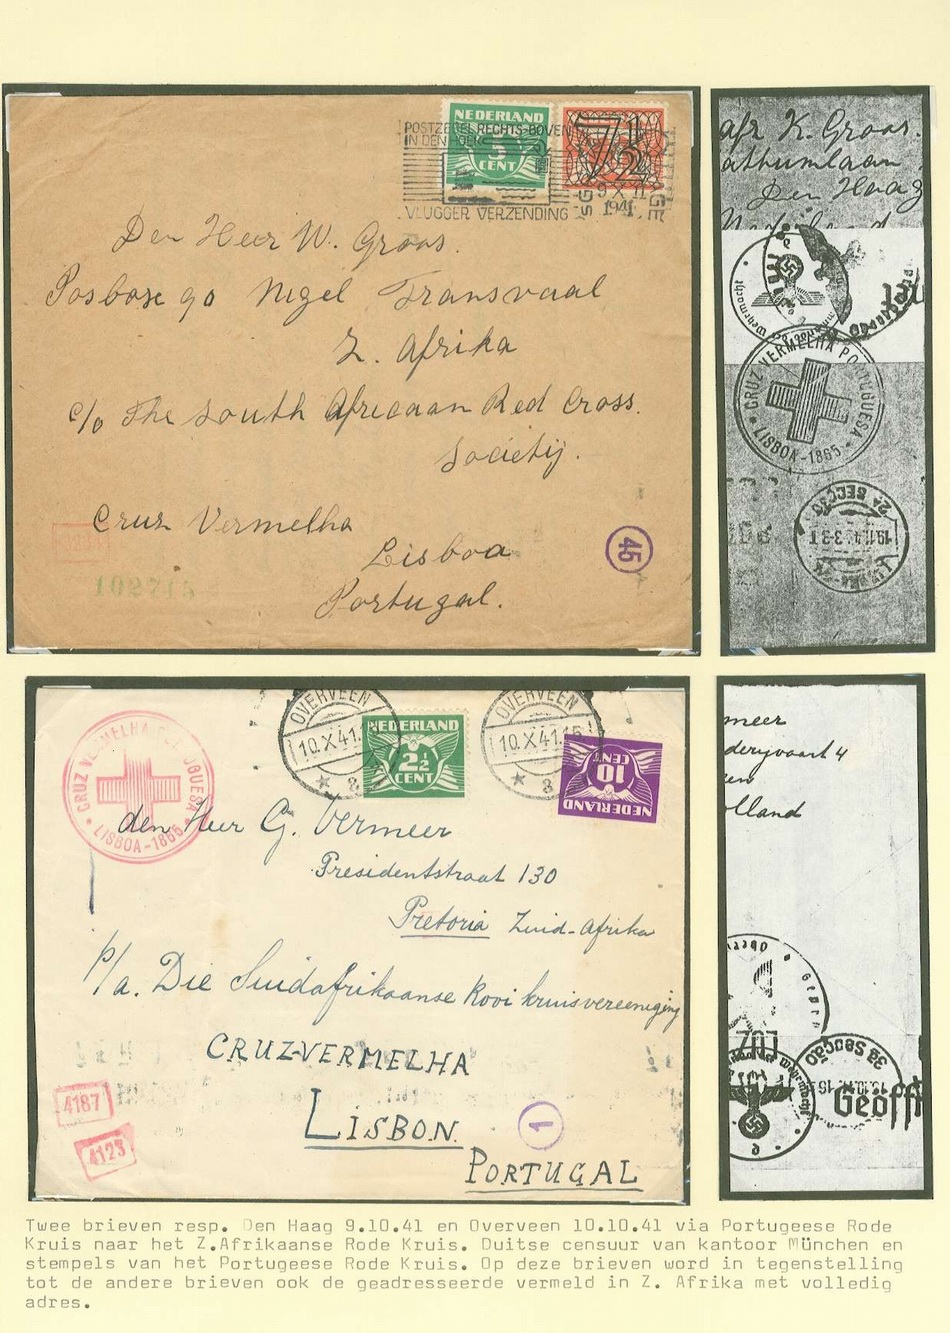 NEDERLAND
5
CENT
7½
POSTZEGEL RECHTS-BOVEN
IN DEN HOEK
VLUGGER VERZENDING
9 X 11
1941
Den Heer W. Groas.
Posbose 90 Nigel Transvaal
Z. Afrika
c/o The South Africaan Red Cross.
Societij.
Cruz Vermelha
Lisboa
Portugal.
45
109715
afz K. Groas.
athumlaan
Den Haag
Nederland
Wehrmacht
CRUZ VERMELHA PORTUGUESA
LISBOA-1865
2A SECÇÃO
OVERVEEN
10.X.41.
OVERVEEN
10.X.41.15
8
NEDERLAND
2½
CENT
NEDERLAND
10
CENT
CRUZ VERMELHA PORTUGUESA
LISBOA-1865
den Heer G. Vermeer
Presidentstraat 130
Pretoria Zuid-Afrika
p/a. Die Suidafrikaanse Rooi kruisvereeniging
CRUZ-VERMELHA
LISBON.
PORTUGAL
4187
4123
1
meer
deryvaart 4
en
olland
3a Secção
Geöff
Twee brieven resp. Den Haag 9.10.41 en Overveen 10.10.41 via Portugeese Rode
Kruis naar het Z.Afrikaanse Rode Kruis. Duitse censuur van kantoor München en
stempels van het Portugeese Rode Kruis. Op deze brieven word in tegenstelling
tot de andere brieven ook de geadresseerde vermeld in Z. Afrika met volledig
adres.